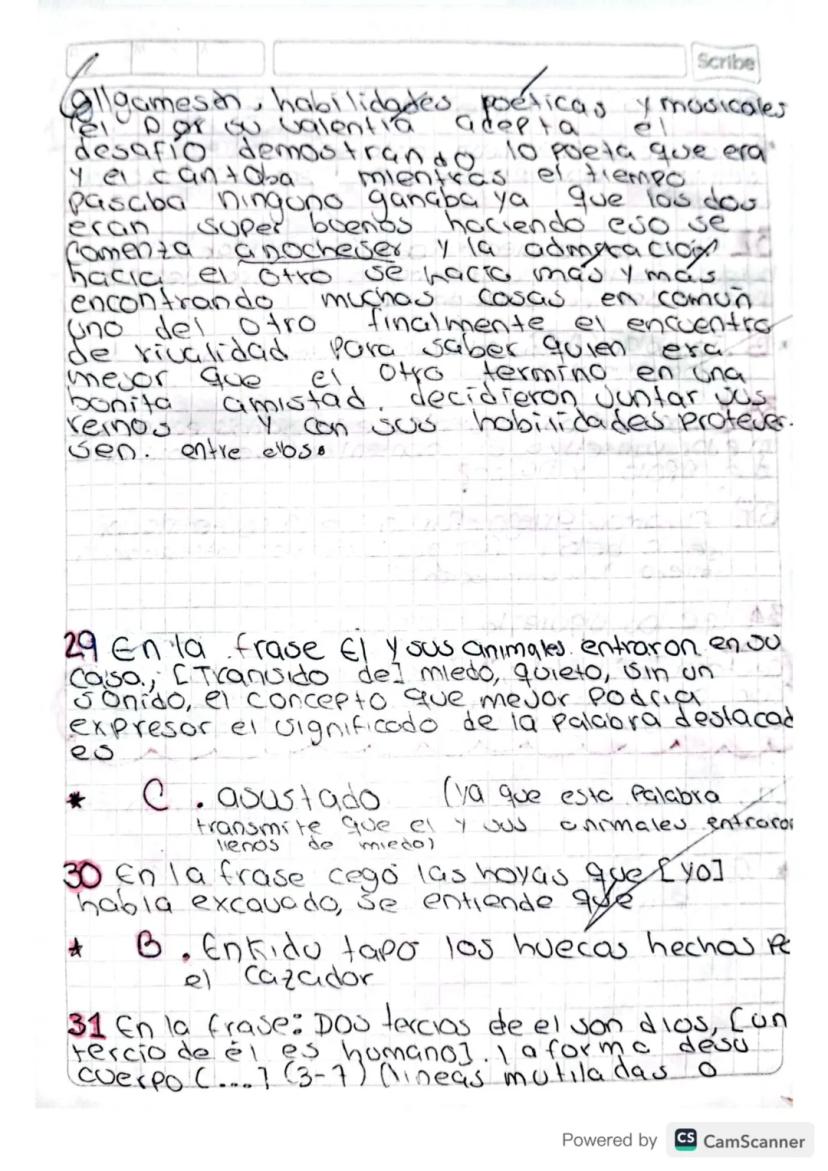 Scribe
Gilgamesh, habilidades poéticas y musicales
el por su valentia adepta el
desafio demostrando lo poeta que era
y el cantaba mientras el tiempo
pasaba ninguno ganaba ya que los dos
eran super buenos haciendo eso se
comenza anocheser y la admiracion
hacia el otro se hacia más y más
encontrando muchas cosas en comun
uno del otro finalmente el encuentro
de rivalidad para saber quien era
mejor que el otro termino en una
bonita amistad. decidieron juntar sus
reinos y con sus habilidades protejer-
sen. entre ellos.
29 En la frase El y sus animales entraron en su
casa, [Transido de] miedo, quieto, sin un
sonido, el concepto que mejor podria
expresor el significado de la palabra destacad
es
* C. asustado (ya que esta palabra
transmite que el y sus animales entraron
llenos de miedo)
30 En la frase cegó las hoyas que [yo]
habia excavado, se entiende que
* B. Enkidu tapo los huecos hechos po
el cazador
31 En la frase: Dos tercios de el son dios, [un
tercio de él es humano]. la forma desu
cuerpo (...] (3-7) (lineas mutiladas o
Powered by CS CamScanner